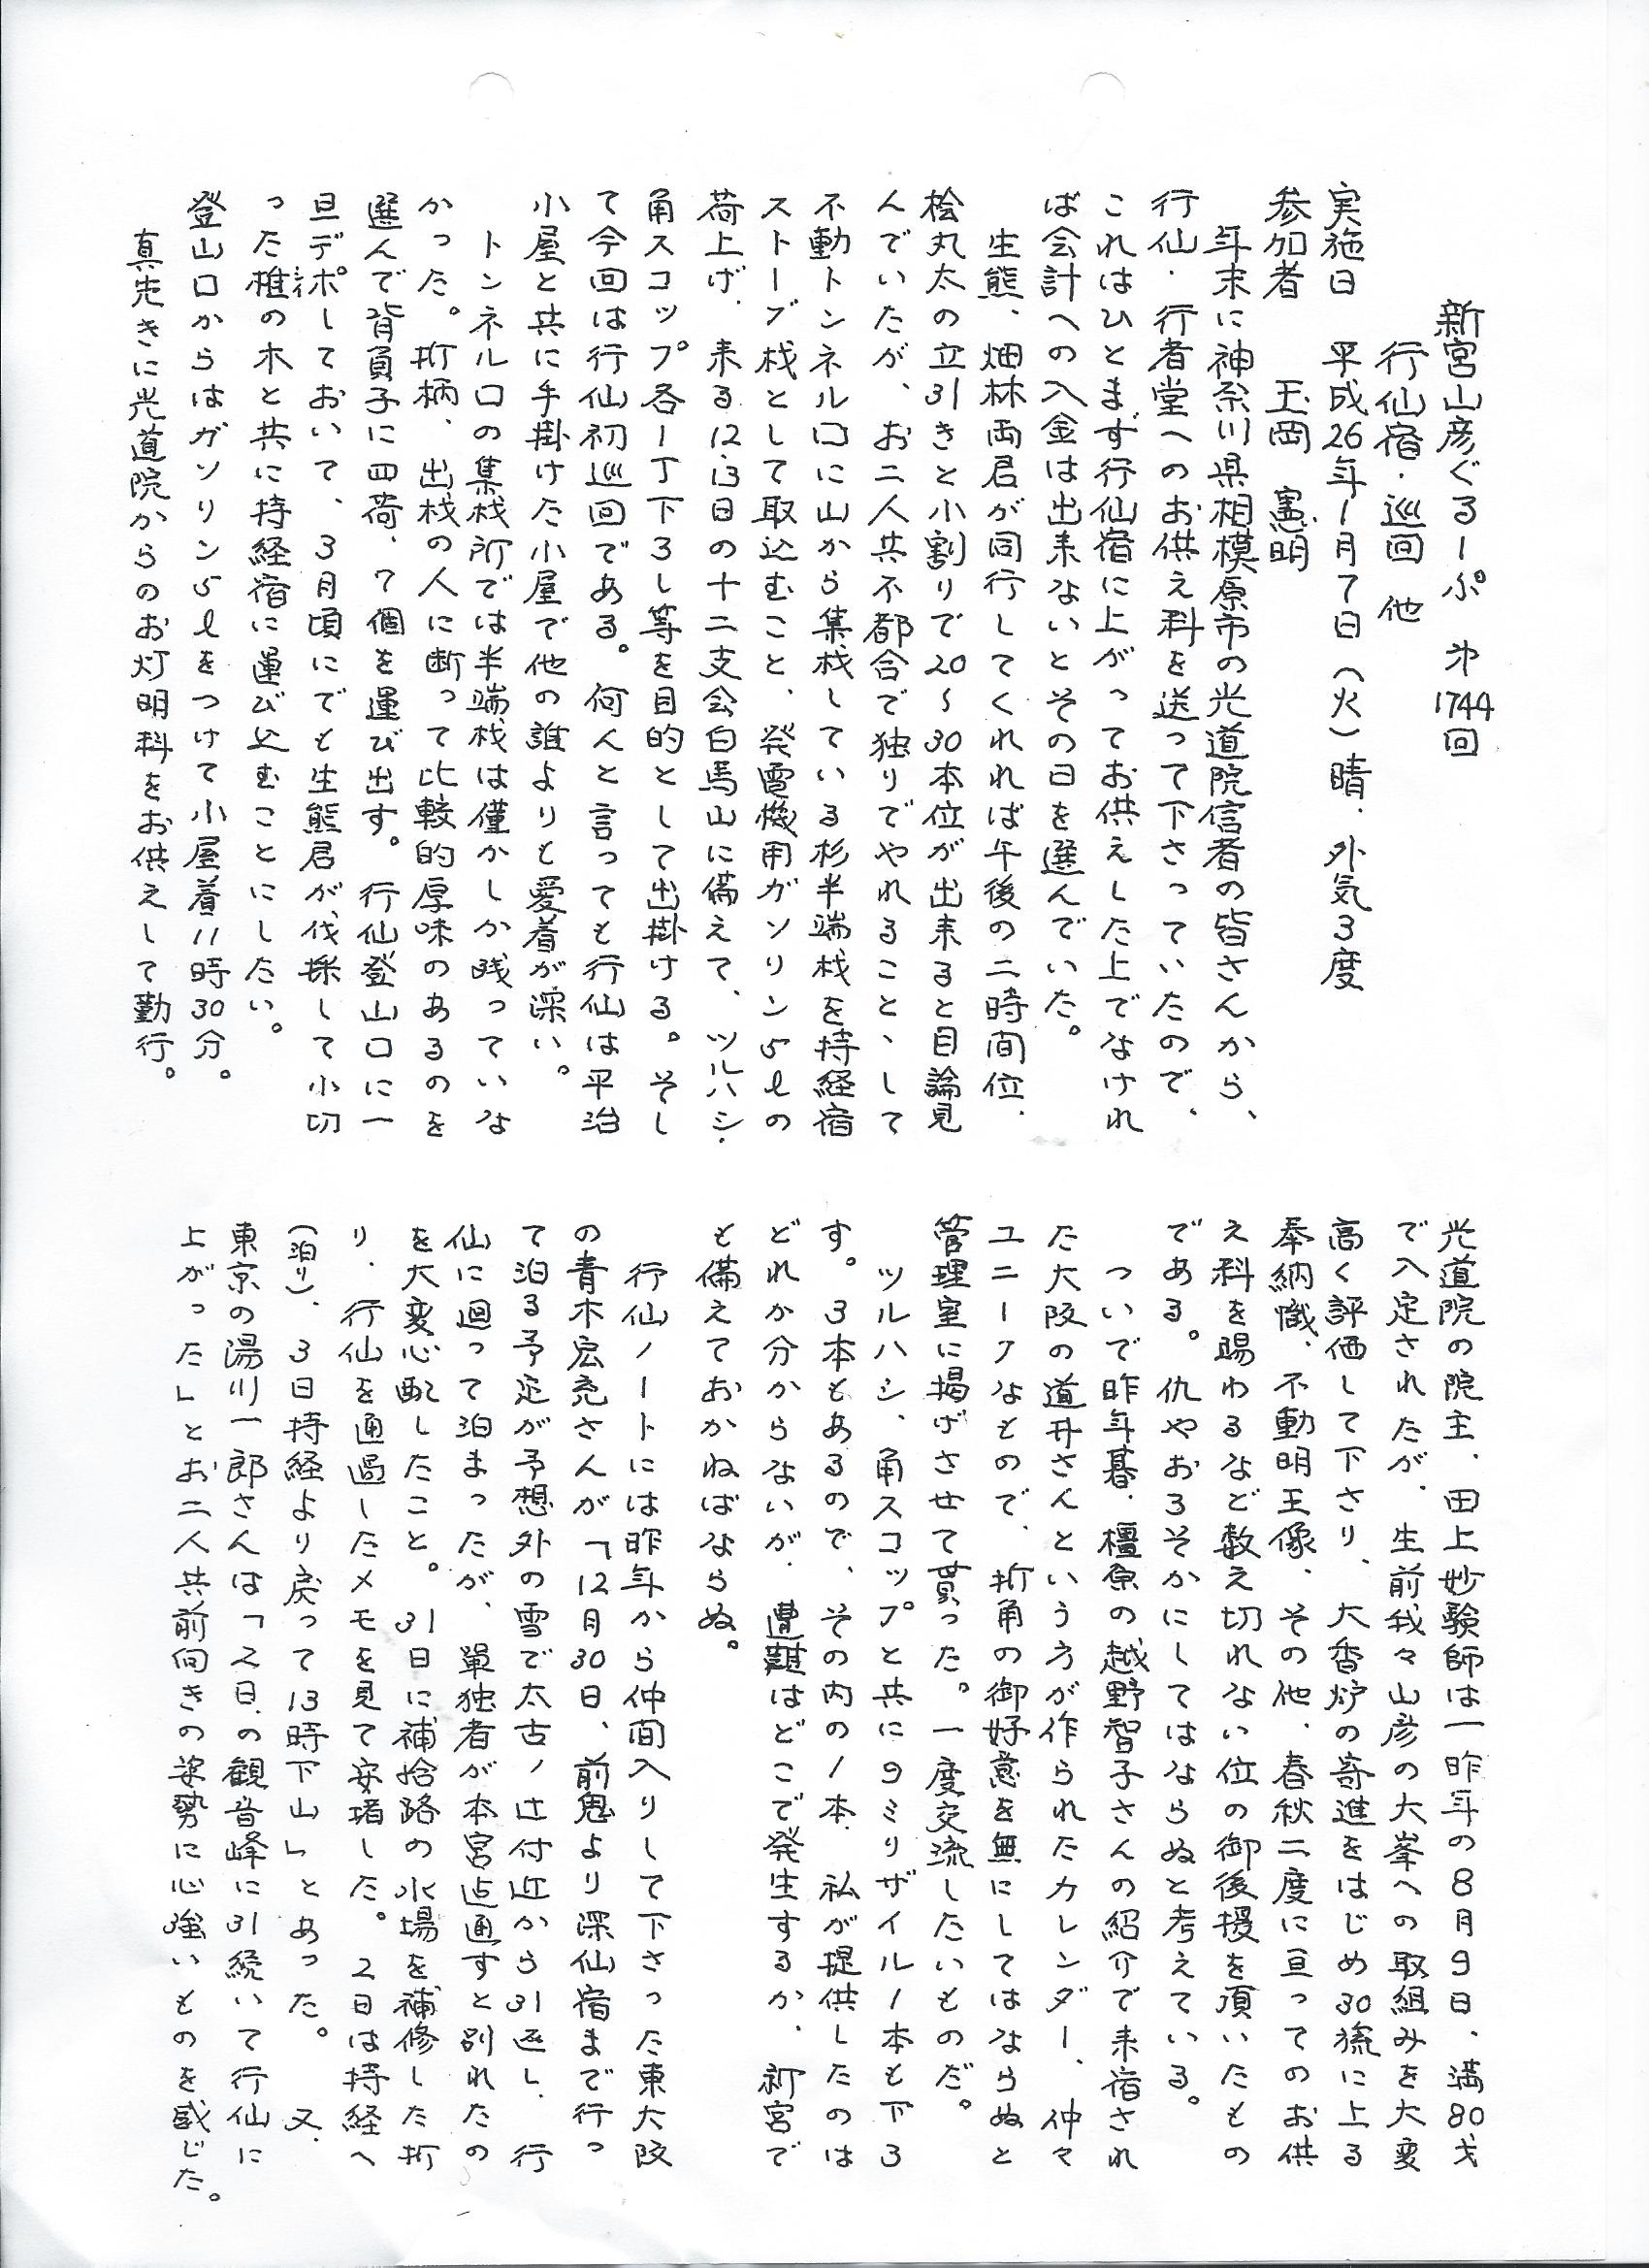 新宮山彦ぐるーぷ 㐧1744回
行仙宿・巡回 他
実施日 平成26年1月7日(火)晴・外気3度
参加者 玉岡 憲明
年末に神奈川県相模原市の光道院信者の皆さんから、
行仙・行者堂へのお供え料を送って下さっていたので、
これはひとまず行仙宿に上がってお供えした上でなけれ
ば会計への入金は出来ないとその日を選んでいた。
生熊、畑林両君が同行してくれれば午後の二時間位、
桧丸太の立引きと小割りで20〜30本位が出来ると目論見
んでいたが、お二人共不都合で独りでやれること、して
不動トンネル口に山から集桟している杉半端桟を持経宿
ストーブ桟として取込むこと、発電機用ガソリン5ℓの
荷上げ、来る12、13日の十二支会白馬山に備えて、ツルハシ、
角スコップ各1丁下ろし等を目的として出掛ける。そし
て今回は行仙初巡回である。何んと言っても行仙は平治
小屋と共に手掛けた小屋で他の誰よりも愛着が深い。
トンネル口の集桟所では半端桟は僅かしか残っていな
かった。折柄、出桟の人に断って比較的厚味のあるのを
選んで背負子に四荷、7個を運び出す。行仙登山口に一
旦デポしておいて、3月頃にでも生熊君が伐採して小切
った椎の木と共に持経宿に運び込むことにしたい。
登山口からはガソリン5ℓをつけて小屋着11時30分。
真先きに光道院からのお灯明料をお供えして勤行。
光道院の院主、田上妙験師は一昨年の8月9日、満80才
で入定されたが、生前我々山彦の大峯への取組みを大変
高く評価して下さり、大香炉の寄進をはじめ30旒に上る
奉納幟、不動明王像、その他、春秋二度に亘ってのお供
え料を賜わるなど数え切れない位の御後援を頂いたもの
である。仇やおろそかにしてはならぬと考えている。
ついで昨年暮、橿原の越野智子さんの紹介で来宿され
た大阪の道井さんという方が作られたカレンダー、仲々
ユニークなもので、折角の御好意を無にしてはならぬと
管理室に掲げさせて貰った。一度交流したいものだ。
ツルハシ、角スコップと共に9ミリザイル1本も下ろ
す。3本もあるので、その内の1本、私が提供したのは
どれか分からないが、遭難はどこで発生するか、新宮で
も備えておかねばならぬ。
行仙ノートには昨年から仲間入りして下さった東大阪
の青木宏充さんが「12月30日、前鬼より深仙宿まで行っ
て泊る予定が予想外の雪で太古ノ辻付近から引返し、行
仙に廻って泊まったが、単独者が本宮迠通すと別れたの
を大変心配したこと。31日に補給路の水場を補修した折
り、行仙を通過したメモを見て安堵した。2日は持経へ
(泊り)、3日持経より戻って13時下山」とあった。又、
東京の湯川一郎さんは「2日の観音峰に引続いて行仙に
上がった」とお二人共前向きの姿勢に心強いものを感じた。